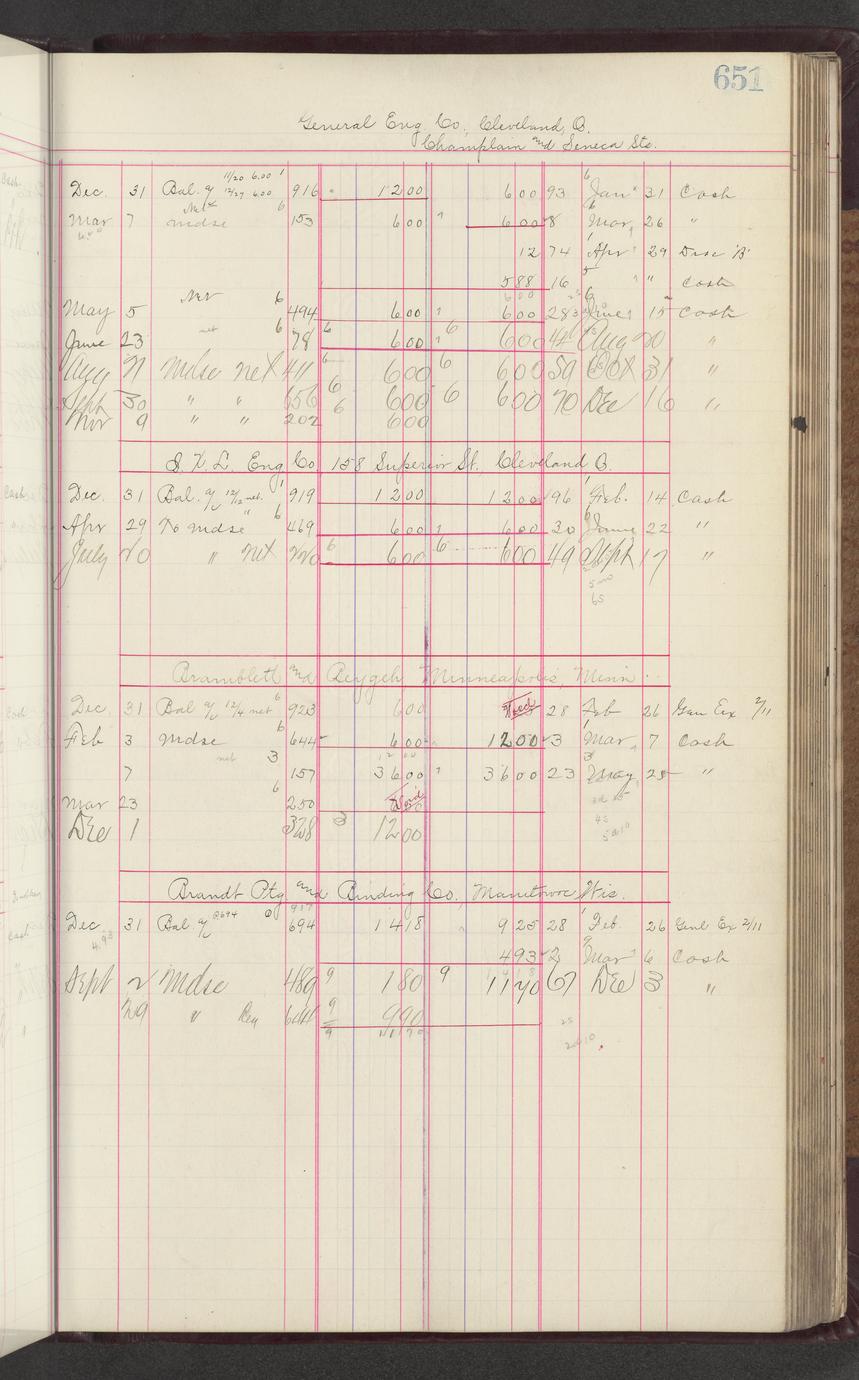 651
General Eng. Co., Cleveland, O.
Champlain and Seneca Sts.
11/20 6.00
Dec. 31 Bal. a/c 12/27 6.00 916 12 00 6 00 93 Jan 31 Cash
Mar 7 mdse Net 6 153 6 00 6 00 8 Mar 26 "
12 74 Apr 29 Disc "B"
5 88 16 " " Cash
May 5 Net 6 494 6 00 6 00 28 June 15 Cash
June 23 net 6 78 6 6 00 6 6 00 41 Aug 20 "
Aug 21 Mdse net 411 6 6 00 6 6 00 59 Oct 31 "
Sept 30 " " 656 6 6 00 6 6 00 70 Dec 16 "
Nov 9 " " 202 6 6 00
I. X. L. Eng. Co. 158 Superior St., Cleveland O.
Dec. 31 Bal. a/c 12/12 net. 919 12 00 12 00 96 Feb. 14 Cash
Apr 29 To mdse " 6 469 6 00 6 00 30 June 22 "
July 20 " net 220 6 6 00 6 6 00 49 Sept 17 "
65
Bramblett and Beygeh Minneapolis, Minn.
Dec. 31 Bal a/c 12/4 net 6 923 6 00 28 Feb 26 Gen Ex 2/11
Feb 3 mdse 6 644 6 00 12 00 3 Mar 7 Cash
12 00
7 net 3 157 36 00 36 00 23 May 25 "
Mar 23 6 250 Void
Dec 1 328 3 12 00
45
Brandt Ptg. and Binding Co., Manitowoc Wis.
917
Dec. 31 Bal. a/c @694 694 14 18 9 25 28 Feb. 26 Genl Ex 2/11
4.93
4 93 2 Mar 6 Cash
Sept 2 Mdse 489 9 1 80 9 11 70 67 Dec 3 "
29 " Reg 644 9 9 90
9 11 70
25